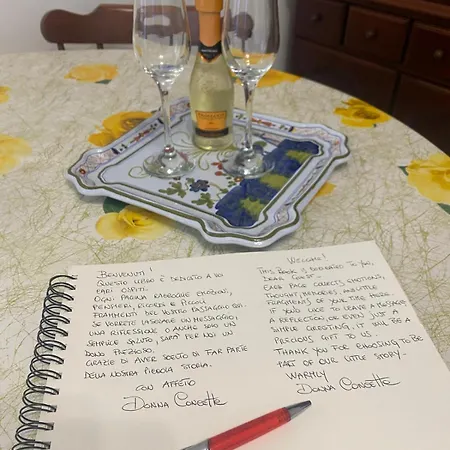 BENVENUTI!
QUESTO LIBRO È DEDICATO A VOI
CARI OSPITI.
OGNI PAGINA RACCOGLIE EMOZIONI,
PENSIERI, RICORDI E PICCOLI
FRAMMENTI DEL VOSTRO PASSAGGIO QUI.
SE VORRETE LASCIARE UN MESSAGGIO,
UNA RIFLESSIONE O ANCHE SOLO UN
SEMPLICE SALUTO, SARÀ PER NOI UN
DONO PREZIOSO.
GRAZIE DI AVER SCELTO DI FAR PARTE
DELLA NOSTRA PICCOLA STORIA.
CON AFFETTO
DONNA CONCETTA
WELCOME!
THIS BOOK IS DEDICATED TO YOU,
DEAR GUEST.
EACH PAGE COLLECTS EMOTIONS,
THOUGHT, MEMORIES, AND LITTLE
FRAGMENTS OF YOUR TIME HERE.
IF YOU'D LIKE TO LEAVE A MESSAGE,
A REFLECTION, OR EVEN JUST A
SIMPLE GREETING, IT WILL BE A
PRECIOUS GIFT TO US.
THANK YOU FOR CHOOSING TO BE
PART OF OUR LITTLE STORY.
WARMLY
DONNA CONCETTA